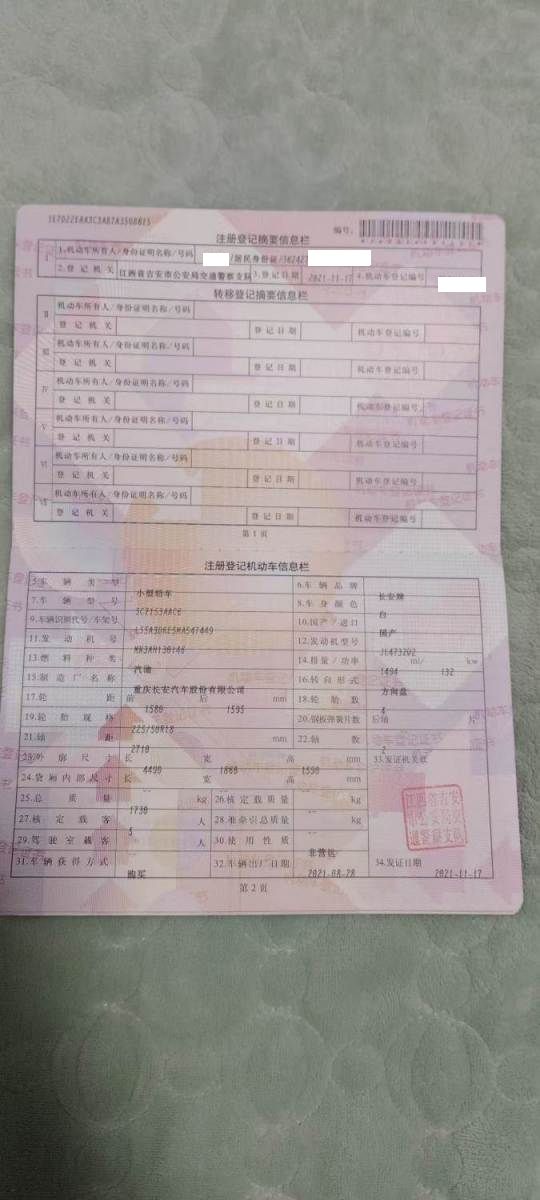 编号:
注册登记摘要信息栏
I 1.机动车所有人/身份证明名称/号码 /居民身份证/362427
2.登记机关 江西省吉安市公安局交通警察支队 3.登记日期 2021-11-17 4.机动车登记编号
转移登记摘要信息栏
II 机动车所有人/身份证明名称/号码
登记机关 登记日期 机动车登记编号
III 机动车所有人/身份证明名称/号码
登记机关 登记日期 机动车登记编号
IV 机动车所有人/身份证明名称/号码
登记机关 登记日期 机动车登记编号
V 机动车所有人/身份证明名称/号码
登记机关 登记日期 机动车登记编号
VI 机动车所有人/身份证明名称/号码
登记机关 登记日期 机动车登记编号
VII 机动车所有人/身份证明名称/号码
登记机关 登记日期 机动车登记编号
第1页
注册登记机动车信息栏
5.车辆类型 小型轿车 6.车辆品牌 长安牌
7.车辆型号 SC7153AAC6 8.车身颜色 白
9.车辆识别代号/车架号 10.国产/进口 国产
11.发动机号 12.发动机型号 JL473ZQ2
13.燃料种类 汽油 14.排量/功率 1494 ml/ 132 kw
15.制造厂名称 重庆长安汽车股份有限公司 16.转向形式 方向盘
17.轮距 前 1586 后 1595 mm 18.轮胎数 4
19.轮胎规格 225/50R18 20.钢板弹簧片数 后轴 片
21.轴距 2710 mm 22.轴数 2
23.外廓尺寸 长 4490 宽 1868 高 1550 mm 33.发证机关章
24.货厢内部尺寸 长 -- 宽 -- 高 -- mm
25.总质量 1730 kg 26.核定载质量 -- kg
27.核定载客 5 人 28.准牵引总质量 -- kg
29.驾驶室载客 -- 人 30.使用性质 非营运
31.车辆获得方式 购买 32.车辆出厂日期 2021-08-28 34.发证日期 2021-11-17
第2页